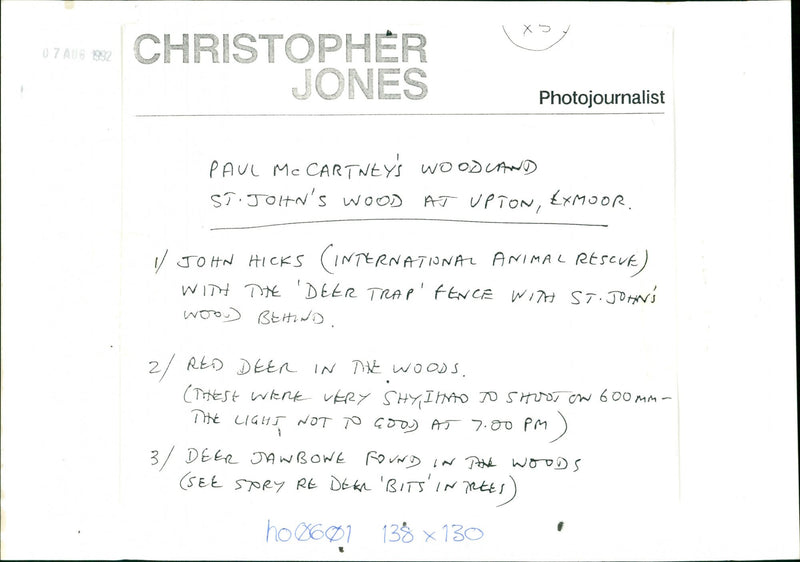 07 AUG 1992
x5.
CHRISTOPHER
JONES
Photojournalist
PAUL McCARTNEY'S WOODLAND
ST. JOHN'S WOOD AT UPTON, EXMOOR.
1/ JOHN HICKS (INTERNATIONAL ANIMAL RESCUE)
WITH THE 'DEER TRAP' FENCE WITH ST. JOHN'S
WOOD BEHIND.
2/ RED DEER IN THE WOODS.
(THESE WERE VERY SHY, I HAD TO SHOOT ON 600MM -
THE LIGHT NOT TO GOOD AT 7.00 PM)
3/ DEER JAWBONE FOUND IN THE WOODS
(SEE STORY RE DEER 'BITS' IN TREES)
h00601 138 x 130